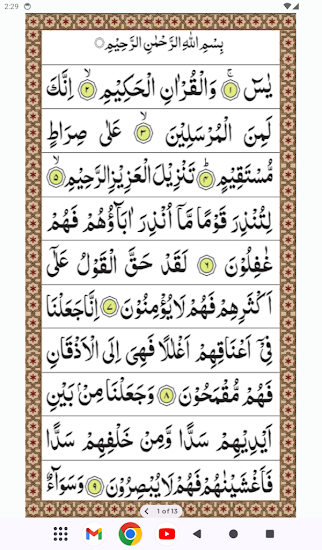 2:29
بِسْمِ اللّٰهِ الرَّحْمٰنِ الرَّحِيْمِ
يٰسٓ ۚ﴿۱﴾ وَالْقُرْاٰنِ الْحَكِيْمِ ۙ﴿۲﴾ اِنَّكَ
لَمِنَ الْمُرْسَلِيْنَ ۙ﴿۳﴾ عَلٰى صِرَاطٍ
مُّسْتَقِيْمٍ ؕ﴿۴﴾ تَنْزِيْلَ الْعَزِيْزِ الرَّحِيْمِ ۙ﴿۵﴾
لِتُنْذِرَ قَوْمًا مَّاۤ اُنْذِرَ اٰبَآؤُهُمْ فَهُمْ
غٰفِلُوْنَ ﴿۶﴾ لَقَدْ حَقَّ الْقَوْلُ عَلٰٓى
اَكْثَرِهِمْ فَهُمْ لَا يُؤْمِنُوْنَ ﴿۷﴾ اِنَّا جَعَلْنَا
فِىْۤ اَعْنَاقِهِمْ اَغْلٰلًا فَهِىَ اِلَى الْاَذْقَانِ
فَهُمْ مُّقْمَحُوْنَ ﴿۸﴾ وَجَعَلْنَا مِنْۢ بَيْنِ
اَيْدِيْهِمْ سَدًّا وَّمِنْ خَلْفِهِمْ سَدًّا
فَاَغْشَيْنٰهُمْ فَهُمْ لَا يُبْصِرُوْنَ ﴿۹﴾ وَسَوَآءٌ
1 of 13